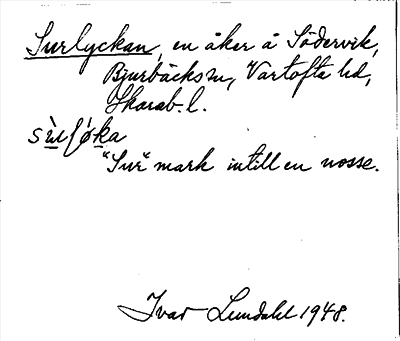 Surlyckan, en åker å Södervik,
Bjurbäcks sn, Vartofta hd,
Skarab. l.
"Sur" mark intill en mosse.
Ivar Lundahl 1948.